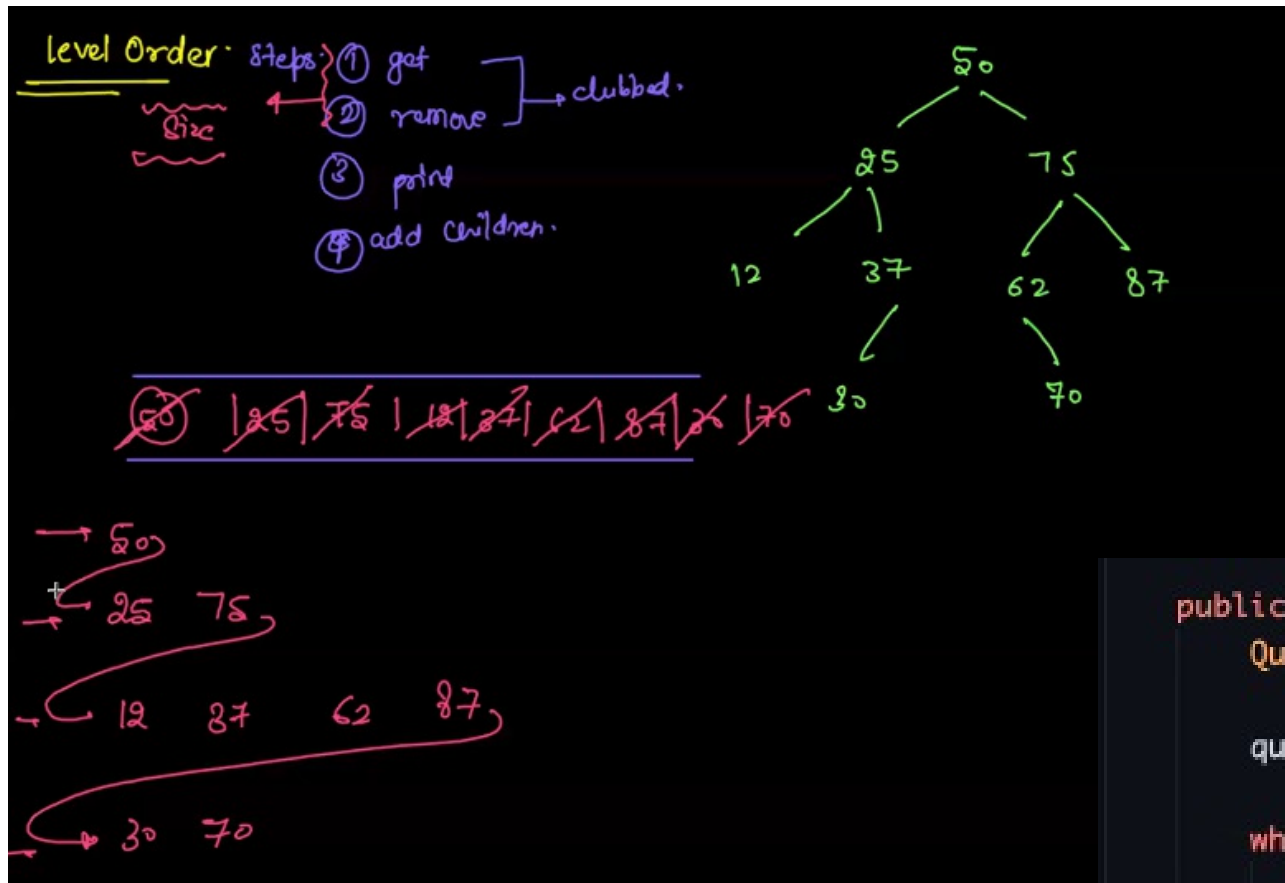 Level Order. Steps: ① get
② remove
→ clubbed.
Size
③ print
④ add children.
50
25 75
12 37 62 87
30 70
50 | 25 | 75 | 12 | 37 | 62 | 87 | 30 | 70
→ 50
→ 25 75
→ 12 37 62 87
→ 30 70
public
Qu
qu
wh